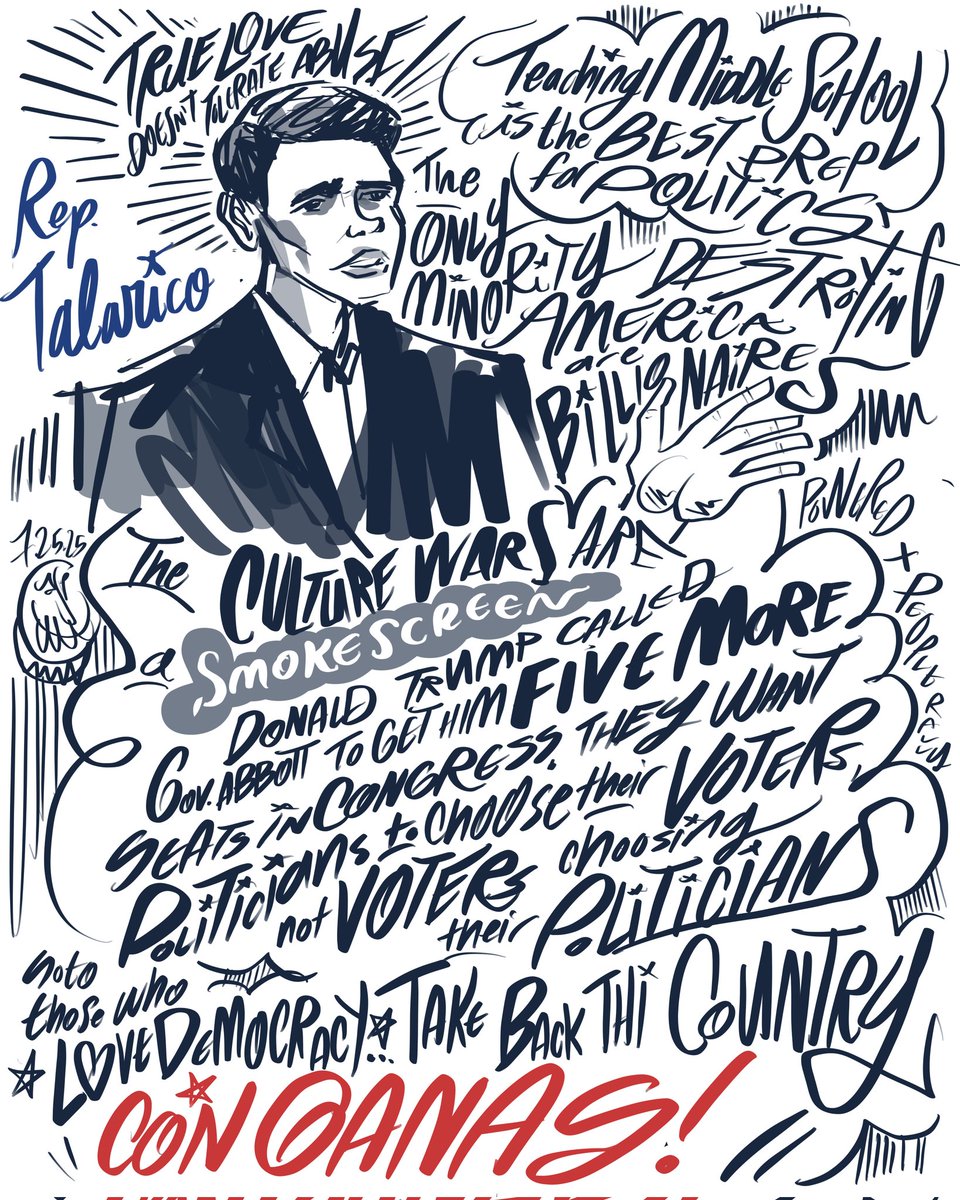 TRUE LOVE
DOESN'T TOLERATE ABUSE
Rep.
Talarico
Teaching Middle School
is the BEST PREP
for POLITICS
The
ONLY
MINORITY DESTROYING
AMERICA
are
BILLIONAIRES
POWERED
+
PEOPLE
7.25.25
The CULTURE WARS ARE
a SMOKESCREEN
DONALD TRUMP CALLED
Gov. ABBOTT TO GET HIM FIVE MORE
SEATS iN CONGRESS. THEY WANT
POLITICIANS to CHOOSE their VOTERS,
not VOTERS choosing
their POLITICIANS
So to
those who
LOVE DEMOCRACY... TAKE BACK THI COUNTRY
CON GANAS!